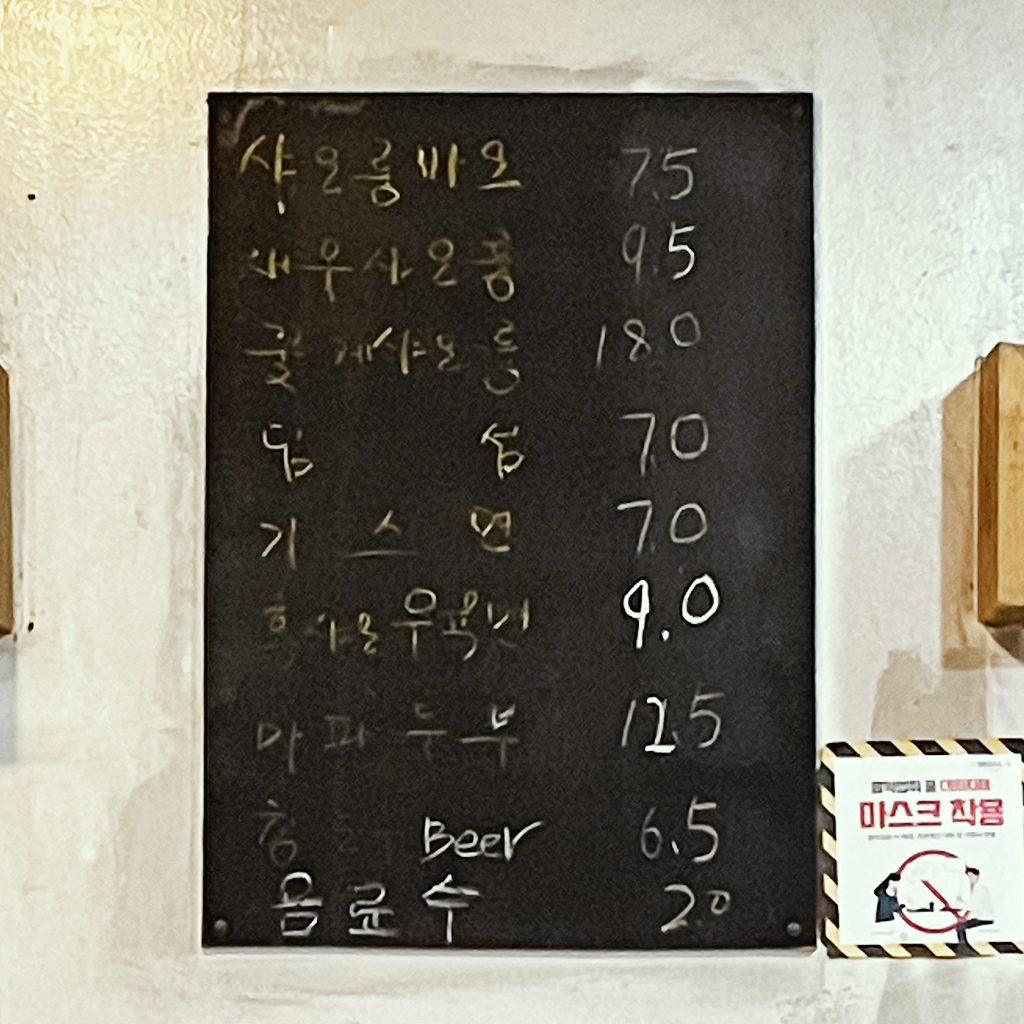 샤오롱바오 7.5
새우샤오롱 9.5
꽃게샤오롱 18.0
딤 섬 7.0
기 스 면 7.0
홍샤오우육면 9.0
마파두부 12.5
칭 Beer 6.5
음료수 20
마스크 착용